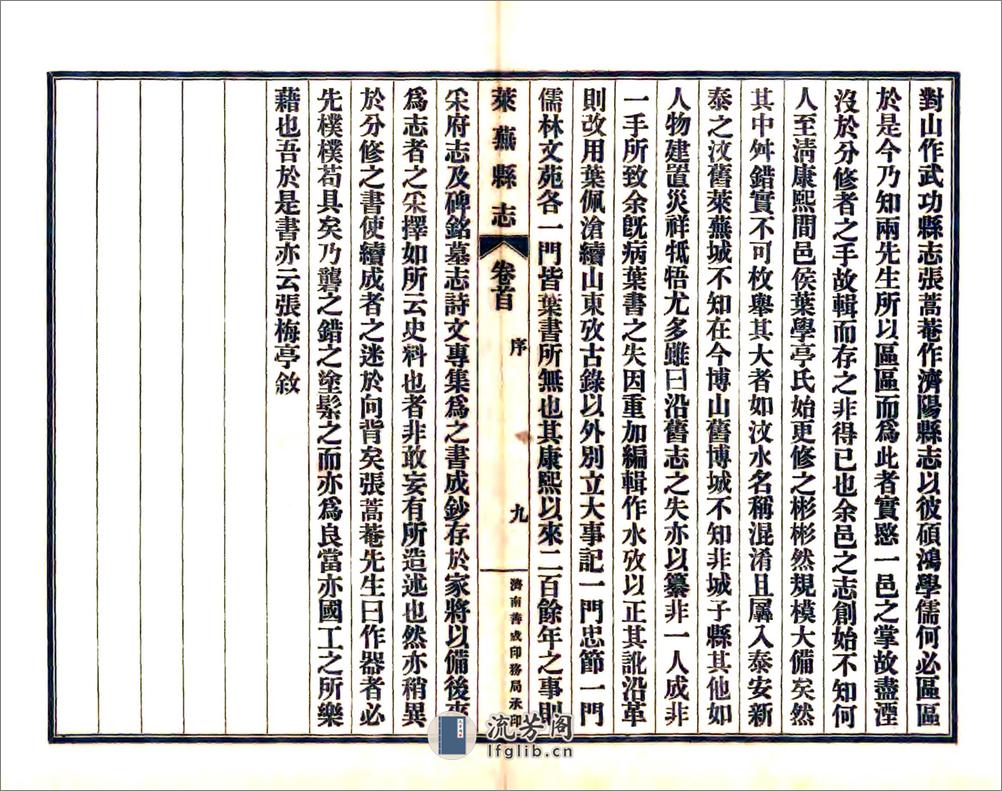 對山作武功縣志張蒿菴作濟陽縣志以彼碩鴻學儒何必區區
於是今乃知兩先生所以區區而爲此者實愍一邑之掌故盡湮
沒於分修者之手故輯而存之非得已也余邑之志創始不知何
人至淸康熙間邑侯葉學亭氏始更修之彬彬然規模大備矣然
其中舛錯實不可枚舉其大者如汶水名稱混淆且羼入泰安新
泰之汶舊萊蕪城不知在今博山舊博城不知非城子縣其他如
人物建置災祥牴牾尤多雖曰沿舊志之失亦以纂非一人成非
一手所致余旣病葉書之失因重加編輯作水攷以正其訛沿革
則改用葉佩滄續山東攷古錄以外別立大事記一門忠節一門
儒林文苑各一門皆葉書所無也其康熙以來二百餘年之事則
萊蕪縣志
卷首
序
九
濟南善成印務局承印
采府志及碑銘墓志詩文專集爲之書成鈔存於家將以備後來
爲志者之采擇如所云史料也者非敢妄有所造述也然亦稍異
於分修之書使續成者之迷於向背矣張蒿菴先生曰作器者必
先樸樸苟具矣乃礱之錯之塗髹之而亦爲良當亦國工之所樂
藉也吾於是書亦云張梅亭敘
流芳阁
lfglib.cn